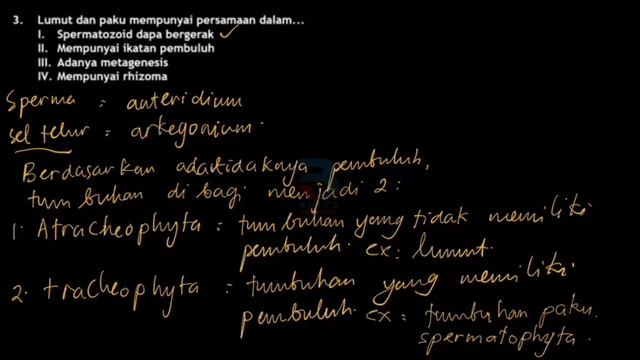 3. Lumut dan paku mempunyai persamaan dalam...
I. Spermatozoid dapa bergerak
II. Mempunyai ikatan pembuluh
III. Adanya metagenesis
IV. Mempunyai rhizoma
Sperma = anteridium
sel telur = arkegonium.
Berdasarkan ada tidaknya pembuluh,
tumbuhan di bagi menjadi 2 :
1. Atracheophyta = tumbuhan yang tidak memiliki
pembuluh. ex = lumut.
2. tracheophyta = tumbuhan yang memiliki
pembuluh. ex = tumbuhan paku.
spermatophyta.